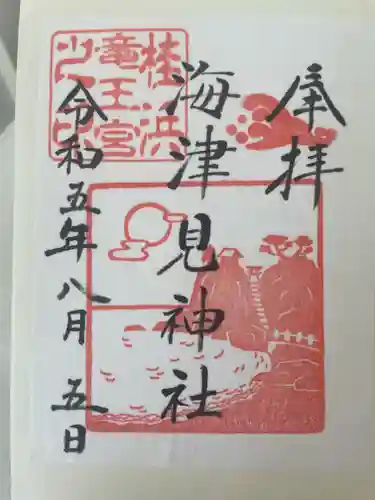 奉拝
海津見神社
令和五年八月五日
桂浜
竜王宮